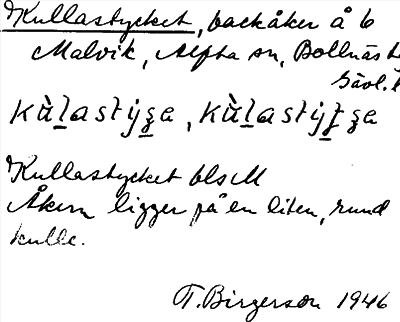 Kullastycket, backåker å 6
Malvik, Alfta sn, Bollnäs
Gävl.
Kullastycket bls M
Åkern ligger på en liten, rund
kulle.
T. Birgerson 1946